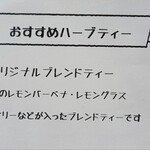 おすすめハーブティー
リジナルブレンドティー
のレモンバーベナ・レモングラス
リーなどが入ったブレンドティーです